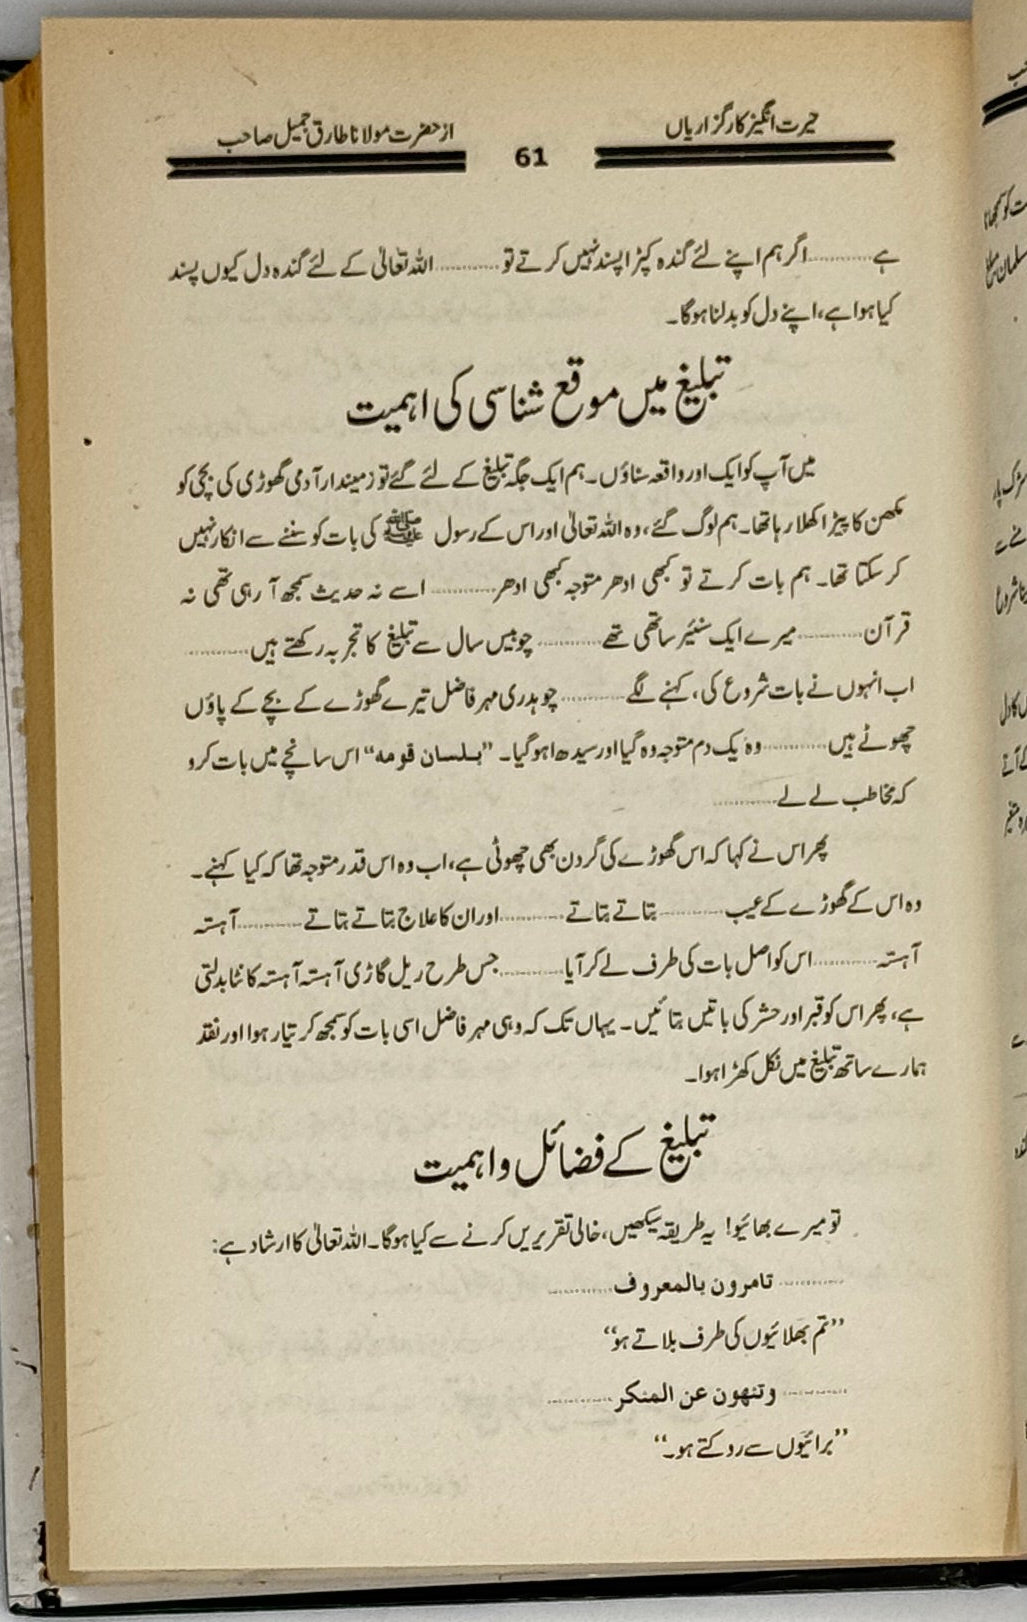 حیرت انگیز کارگزاریاں
61
از حضرت مولانا طارق جمیل صاحب
ہے............اگر ہم اپنے لئے گندہ کپڑا پسند نہیں کرتے تو............اللہ تعالیٰ کے لئے گندہ دل کیوں پسند
کیا ہوا ہے، اپنے دل کو بدلنا ہوگا۔
تبلیغ میں موقع شناسی کی اہمیت
میں آپ کو ایک اور واقعہ سناؤں۔ ہم ایک جگہ تبلیغ کے لئے گئے تو زمیندار آدمی گھوڑی کی بچی کو
مکھن کا پیڑا کھلا رہا تھا۔ ہم لوگ گئے، وہ اللہ تعالیٰ اور اس کے رسول ﷺ کی بات کو سننے سے انکار نہیں
کر سکتا تھا۔ ہم بات کرتے تو کبھی ادھر متوجہ کبھی ادھر............ اسے نہ حدیث سمجھ آ رہی تھی نہ
قرآن............میرے ایک سنئیر ساتھی تھے............چوبیس سال سے تبلیغ کا تجربہ رکھتے ہیں............
اب انہوں نے بات شروع کی، کہنے لگے............چوہدری مہر فاضل تیرے گھوڑے کے بچے کے پاؤں
چھوٹے ہیں............وہ یک دم متوجہ وہ گیا اور سیدھا ہو گیا۔ ”بلسان قومه“ اس سانچے میں بات کرو
کہ مخاطب لے لے............
پھر اس نے کہا کہ اس گھوڑے کی گردن بھی چھوٹی ہے، اب وہ اس قدر متوجہ تھا کہ کیا کہنے۔
وہ اس کے گھوڑے کے عیب............بتاتے بتاتے............اور ان کا علاج بتاتے بتاتے............آہستہ
آہستہ............اس کو اصل بات کی طرف لے کر آیا............جس طرح ریل گاڑی آہستہ آہستہ کانٹا بدلتی
ہے، پھر اس کو قبر اور حشر کی باتیں بتائیں۔ یہاں تک کہ وہی مہر فاضل اسی بات کو سمجھ کر تیار ہوا اور نقد
ہمارے ساتھ تبلیغ میں نکل کھڑا ہوا۔
تبلیغ کے فضائل و اہمیت
تو میرے بھائیو! یہ طریقہ سیکھیں، خالی تقریریں کرنے سے کیا ہوگا۔ اللہ تعالیٰ کا ارشاد ہے:
............تامرون بالمعروف............
”تم بھلائیوں کی طرف بلاتے ہو“
............وتنهون عن المنكر............
”برائیوں سے روکتے ہو۔“